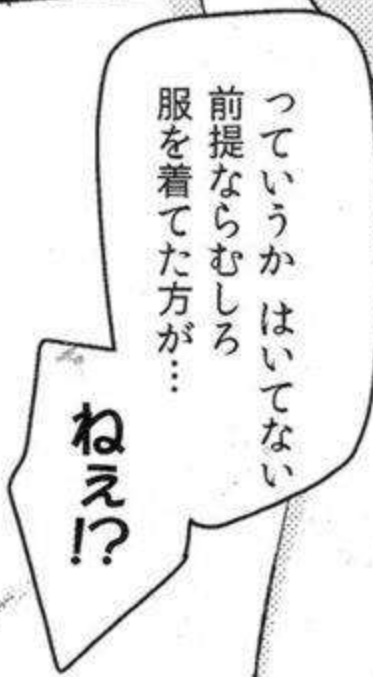 っていうか はいてない
前提ならむしろ
服を着てた方が…
ねぇ!?